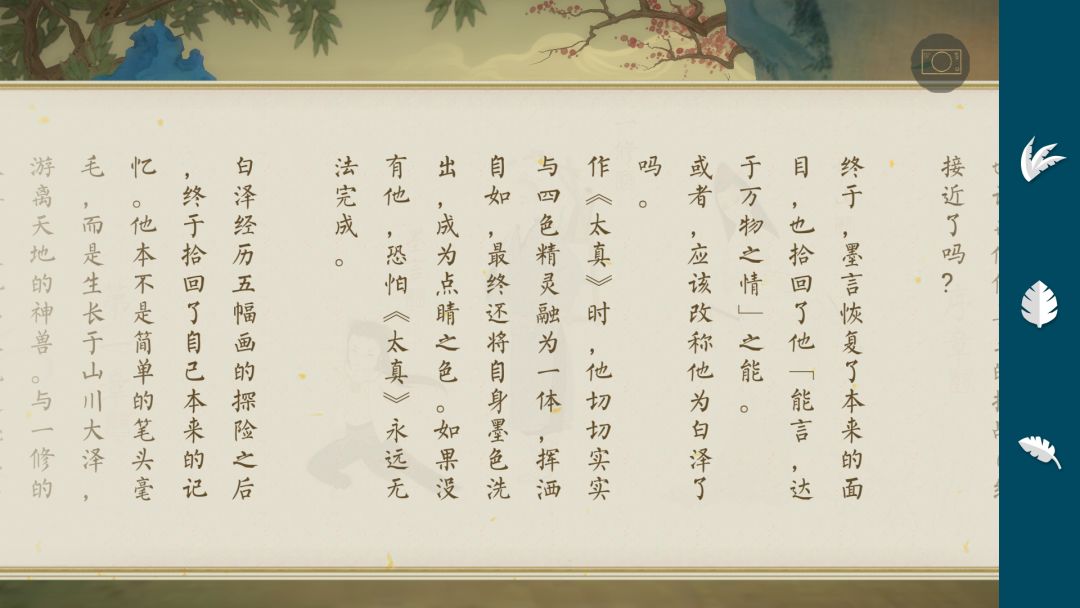 接近了吗？
终于，墨言恢复了本来的面
目，也拾回了他「能言，达
于万物之情」之能。
或者，应该改称他为白泽了
吗。
作《太真》时，他切切实实
与四色精灵融为一体，挥洒
自如，最终还将自身墨色洗
出，成为点睛之色。如果没
有他，恐怕《太真》永远无
法完成。
白泽经历五幅画的探险之后
，终于拾回了自己本来的记
忆。他本不是简单的笔头毫
毛，而是生长于山川大泽，
游离天地的神兽。与一修的